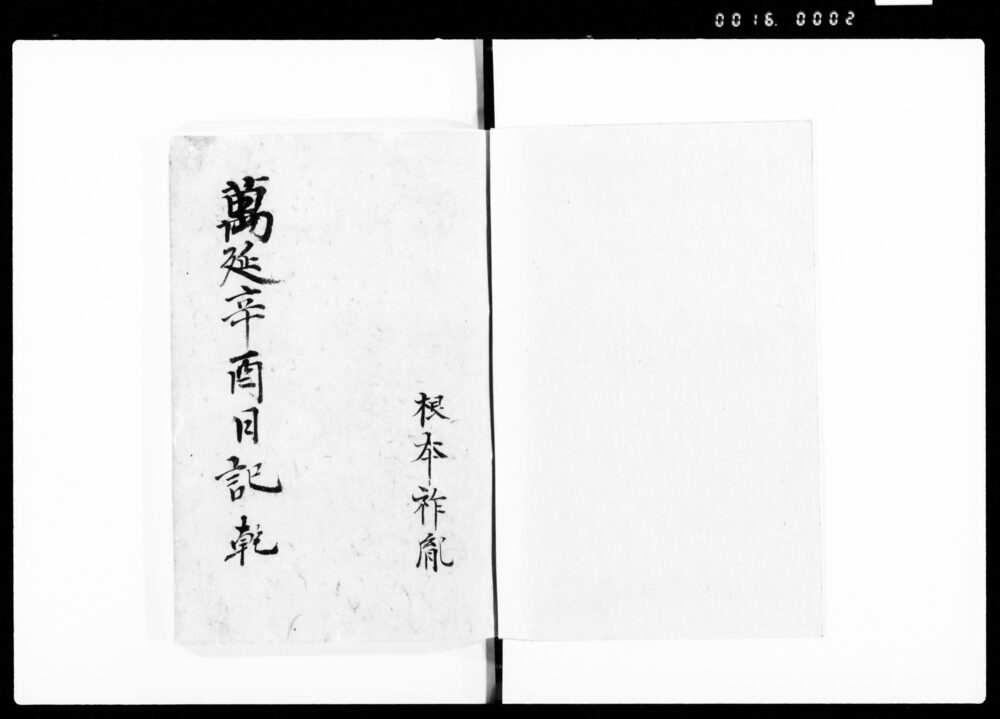 0016. 0002
根本祚胤
萬延辛酉日記乾